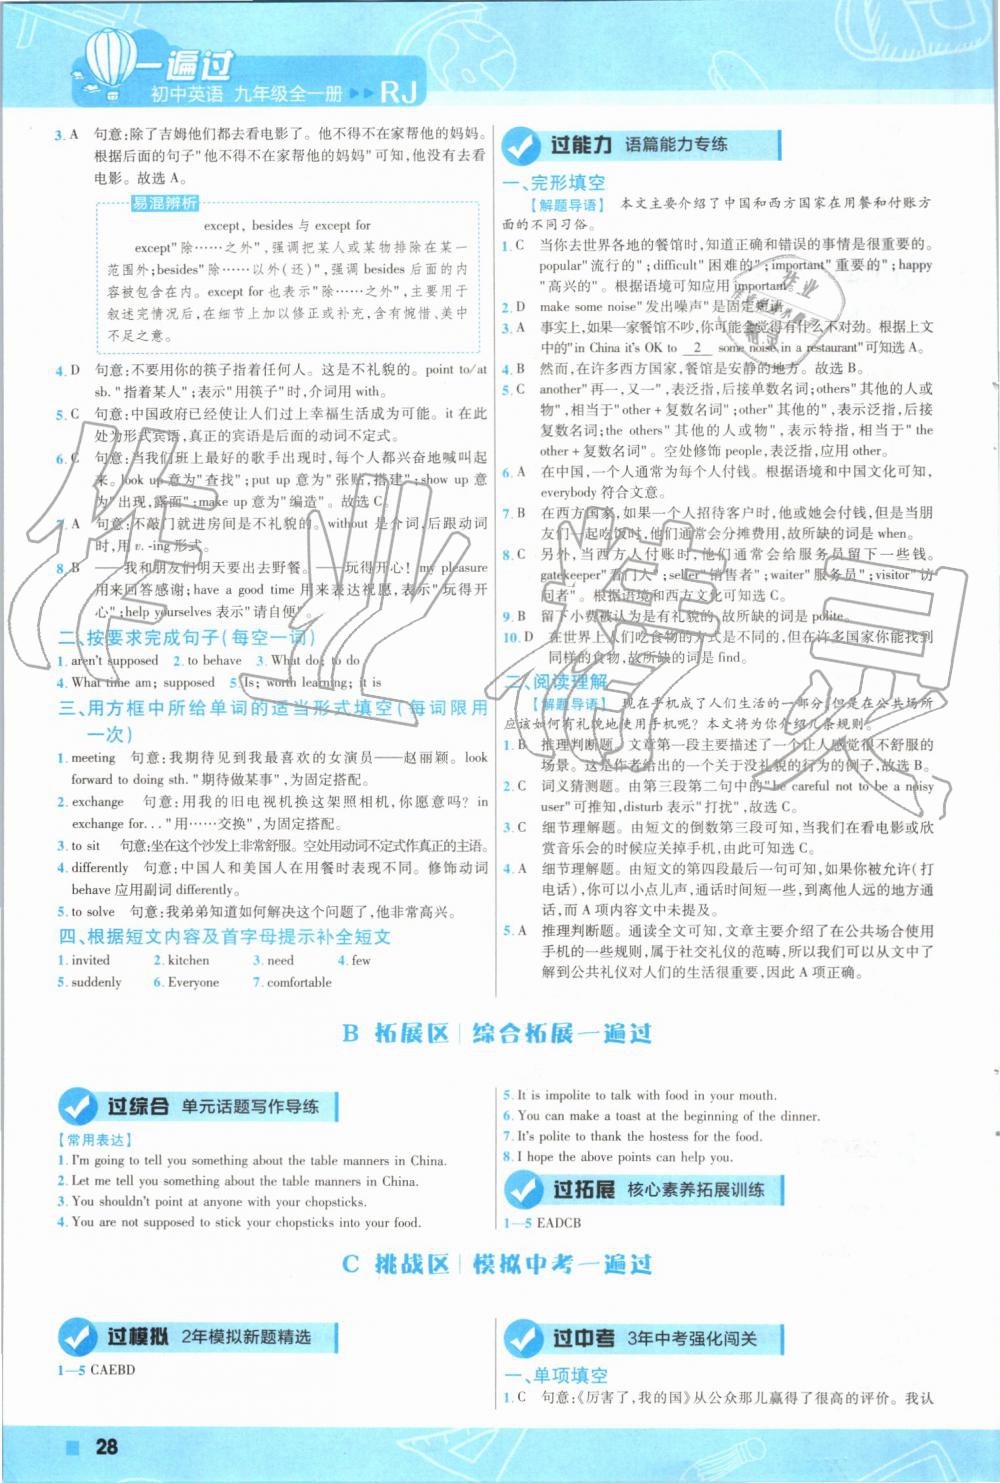 一遍过
初中英语 九年级全一册 RJ
3. A 句意:除了吉姆他们都去看电影了。他不得不在家帮他的妈妈。
根据后面的句子"他不得不在家帮他的妈妈"可知,他没有去看
电影。故选 A。
易混辨析
except, besides 与 except for
except"除……之外",强调把某人或某物排除在某一
范围外;besides"除……以外(还)",强调 besides 后面的内容
被包含在内。except for 也表示"除……之外",主要用于
叙述完情况后,在细节上加以修正或补充,含有惋惜、美中
不足之意。
4. D 句意:不要用你的筷子指着任何人。这是不礼貌的。point to/at
sb. "指着某人";表示"用筷子"时,介词用 with。
5. C 句意:中国政府已经使让人们过上幸福生活成为可能。it 在此
处为形式宾语,真正的宾语是后面的动词不定式。
6. C 句意:当我们班上最好的歌手出现时,每个人都兴奋地喊叫起
来。look up 意为"查找";put up 意为"张贴,搭建";show up 意
为"出现,露面";make up 意为"编造"。故选 C。
7. A 句意:不敲门就进房间是不礼貌的。without 是介词,后跟动词
时,用 v. -ing 形式。
8. B ——我和朋友们明天要出去野餐。——玩得开心! my pleasure
用来回答感谢;have a good time 用来表达祝愿,表示"玩得开
心";help yourselves 表示"请自便"。
二、按要求完成句子(每空一词)
1. aren't supposed 2. to behave 3. What do; to do
4. What time am; supposed 5. Is; worth learning; it is
三、用方框中所给单词的适当形式填空(每词限用
一次)
1. meeting 句意:我期待见到我最喜欢的女演员——赵丽颖。look
forward to doing sth. "期待做某事",为固定搭配。
2. exchange 句意:用我的旧电视机换这架照相机,你愿意吗? in
exchange for... "用……交换",为固定搭配。
3. to sit 句意:坐在这个沙发上非常舒服。空处用动词不定式作真正的主语。
4. differently 句意:中国人和美国人在用餐时表现不同。修饰动词
behave 应用副词 differently。
5. to solve 句意:我弟弟知道如何解决这个问题了,他非常高兴。
四、根据短文内容及首字母提示补全短文
1. invited 2. kitchen 3. need 4. few
5. suddenly 6. Everyone 7. comfortable
过能力 语篇能力专练
一、完形填空
【解题导语】 本文主要介绍了中国和西方国家在用餐和付账方
面的不同习俗。
1. C 当你去世界各地的餐馆时,知道正确和错误的事情是很重要的。
popular"流行的";difficult"困难的";important"重要的";happy
"高兴的"。根据语境可知应用 important。
2. D make some noise"发出噪声"是固定短语。
3. A 事实上,如果一家餐馆不吵,你可能会觉得有什么不对劲。根据上文
中的"in China it's OK to 2 some noise in a restaurant"可知选 A。
4. B 然而,在许多西方国家,餐馆是安静的地方。故选 B。
5. C another"再一,又一",表泛指,后接单数名词;others"其他的人或
物",相当于"other + 复数名词";other"其他的",表示泛指,后接
复数名词;the others"其他的人或物",表示特指,相当于"the
other + 复数名词"。空处修饰 people,表泛指,应用 other。
6. A 在中国,一个人通常为每个人付钱。根据语境和中国文化可知,
everybody 符合文意。
7. B 在西方国家,如果一个人招待客户时,他或她会付钱,但是当朋
友们一起吃饭时,他们通常会分摊费用,故所缺的词是 when。
8. C 另外,当西方人付账时,他们通常会给服务员留下一些钱。
gatekeeper"看门人";seller"销售者";waiter"服务员";visitor"访
问者"。根据语境和西方文化可知选 C。
9. B 留下小费被认为是有礼貌的,故所缺的词是 polite。
10. D 在世界上人们吃食物的方式是不同的,但在许多国家你能找到
同样的食物,故所缺的词是 find。
二、阅读理解
【解题导语】 现在手机成了人们生活的一部分,但是在公共场所
应该如何有礼貌地使用手机呢? 本文将为你介绍几条规则。
1. B 推理判断题。文章第一段主要描述了一个让人感觉很不舒服的
场景。这是作者给出的一个关于没礼貌的行为的例子,故选 B。
2. C 词义猜测题。由第三段第二句中的"be careful not to be a noisy
user"可推知,disturb 表示"打扰",故选 C。
3. C 细节理解题。由短文的倒数第三段可知,当我们在看电影或欣
赏音乐会的时候应关掉手机,由此可知选 C。
4. A 细节理解题。由短文的第四段最后一句可知,如果你接允许(打
电话),你可以小点儿声,通话时间短一些,到离他人远的地方通
话,而 A 项内容文中未提及。
5. A 推理判断题。通读全文可知,文章主要介绍了在公共场合使用
手机的一些规则,属于社交礼仪的范畴,所以我们可以从文中了
解到公共礼仪对人们的生活很重要,因此 A 项正确。
B 拓展区 综合拓展一遍过
过综合 单元话题写作导练
【常用表达】
1. I'm going to tell you something about the table manners in China.
2. Let me tell you something about the table manners in China.
3. You shouldn't point at anyone with your chopsticks.
4. You are not supposed to stick your chopsticks into your food.
5. It is impolite to talk with food in your mouth.
6. You can make a toast at the beginning of the dinner.
7. It's polite to thank the hostess for the food.
8. I hope the above points can help you.
过拓展 核心素养拓展训练
1—5 EADCB
C 挑战区 模拟中考一遍过
过模拟 2年模拟新题精选
1—5 CAEBD
过中考 3年中考强化闯关
一、单项填空
1. C 句意:《厉害了,我的国》从公众那儿赢得了很高的评价。我认
28